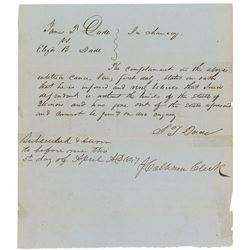 James P. Dade
vs
Eliza B. Dade
In chancery
The complainant in the above
entitled cause, being first duly states on oath
that he is informed and verily believes that said
defendant is without the limits of the State of
Illinois and has gone out of the state aforesaid
and cannot be found on due enquiry
Subscribed & sworn
to before me this
5th day of April AD 1847
J Calhoun Clerk